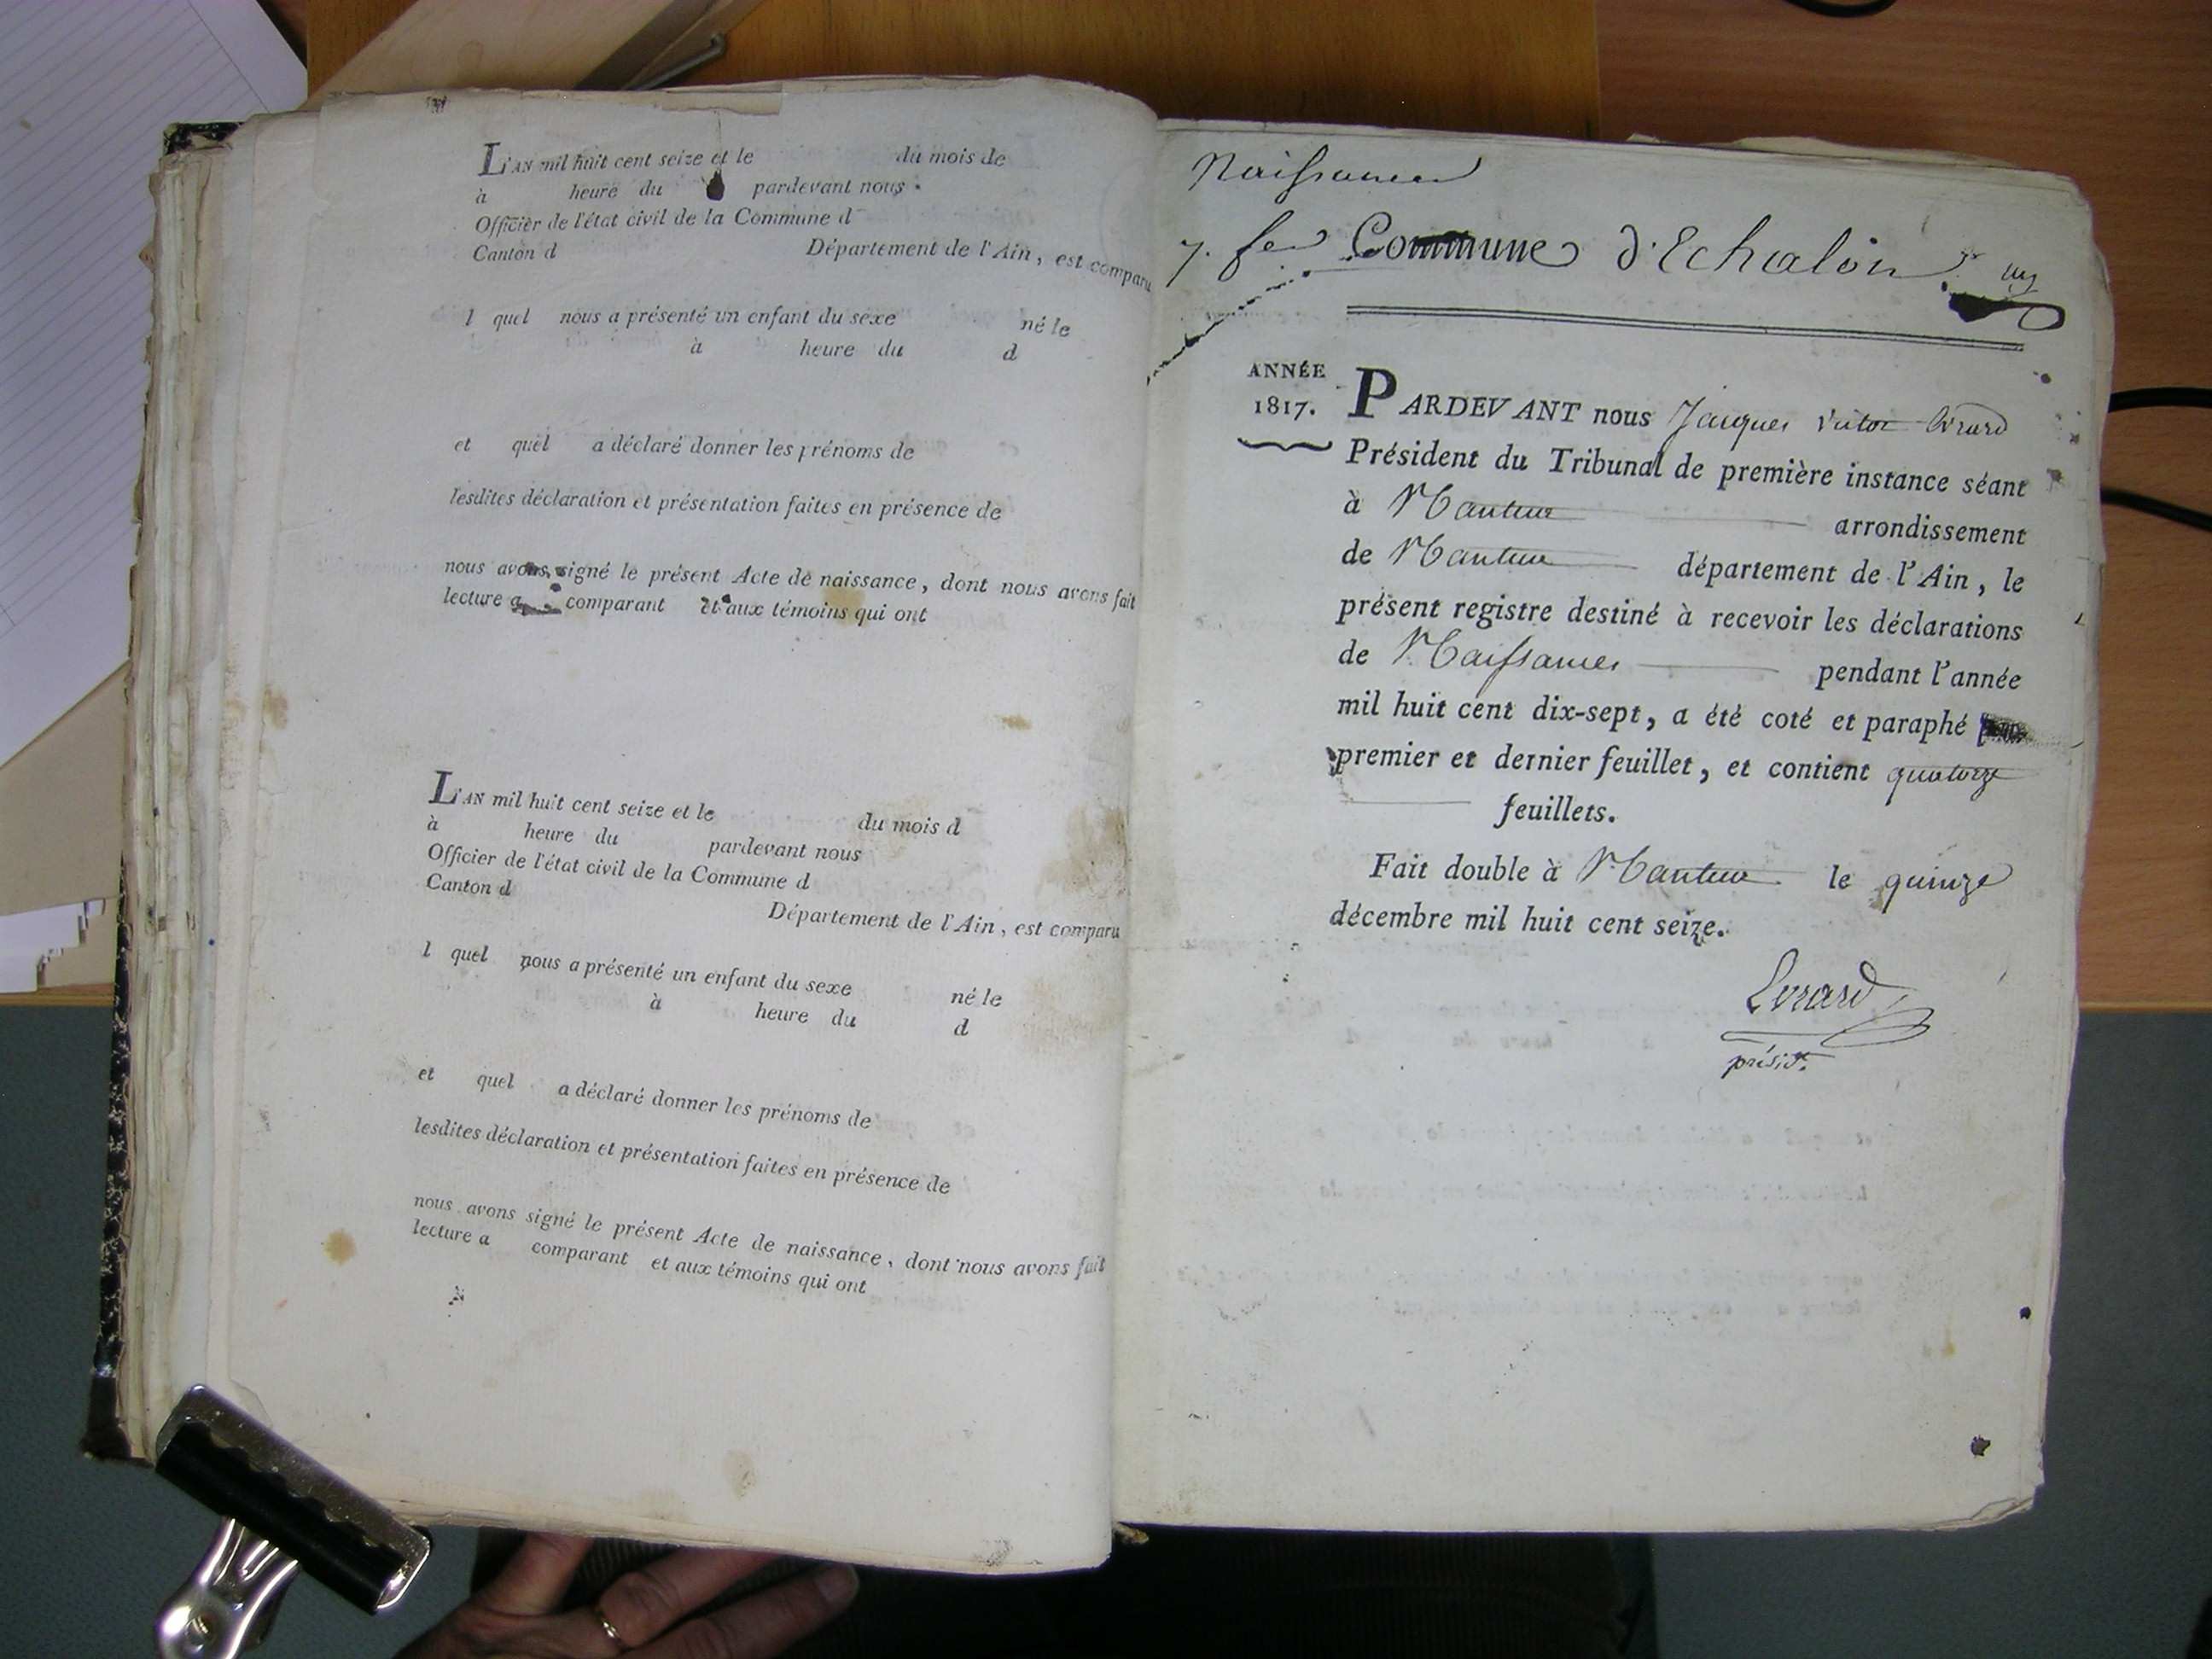 L'AN mil huit cent seize et le du mois de
à heure du pardevant nous
Officier de l'état civil de la Commune d
Canton d Département de l'Ain, est comparu
l quel nous a présenté un enfant du sexe né le
à heure du d
et quel a déclaré donner les prénoms de
lesdites déclaration et présentation faites en présence de
nous avons signé le présent Acte de naissance, dont nous avons fait
lecture a comparant et aux témoins qui ont
L'AN mil huit cent seize et le du mois d
à heure du pardevant nous
Officier de l'état civil de la Commune d
Canton d
Département de l'Ain, est comparu
l quel nous a présenté un enfant du sexe né le
à heure du d
et quel a déclaré donner les prénoms de
lesdites déclaration et présentation faites en présence de
nous avons signé le présent Acte de naissance, dont nous avons fait
lecture a comparant et aux témoins qui ont
Naissances
7. fer Commune d'Echalon
ANNÉE
1817.
PARDEVANT nous Jacques Victor Evrard
Président du Tribunal de première instance séant
à Nantua arrondissement
de Nantua département de l'Ain, le
présent registre destiné à recevoir les déclarations
de Naissances pendant l'année
mil huit cent dix-sept, a été coté et paraphé
premier et dernier feuillet, et contient quatorze
feuillets.
Fait double à Nantua le quinze
décembre mil huit cent seize.
Evrard
présidt.